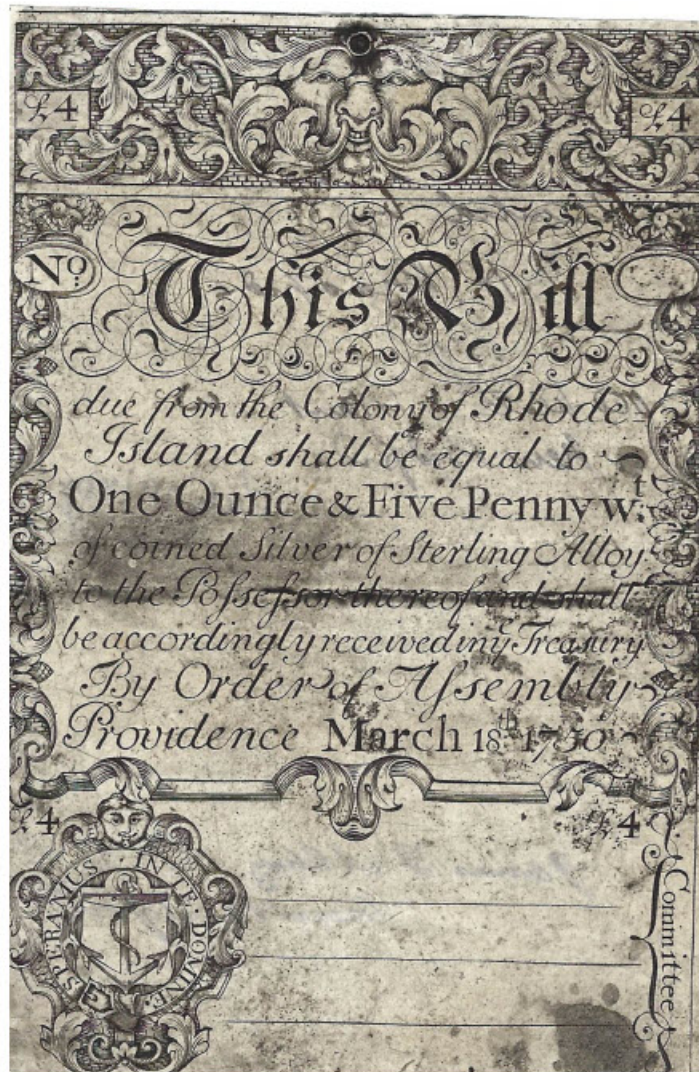 £4 £4
No.
This Bill
due from the Colony of Rhode-
Island shall be equal to
One Ounce & Five Penny wt.
of coined Silver of Sterling Alloy
to the Possessor thereof and shall
be accordingly received in ye Treasury
By Order of Assembly
Providence March 18th 1750
£4 £4
SPERAMUS · IN TE · DOMINE ·
Committee